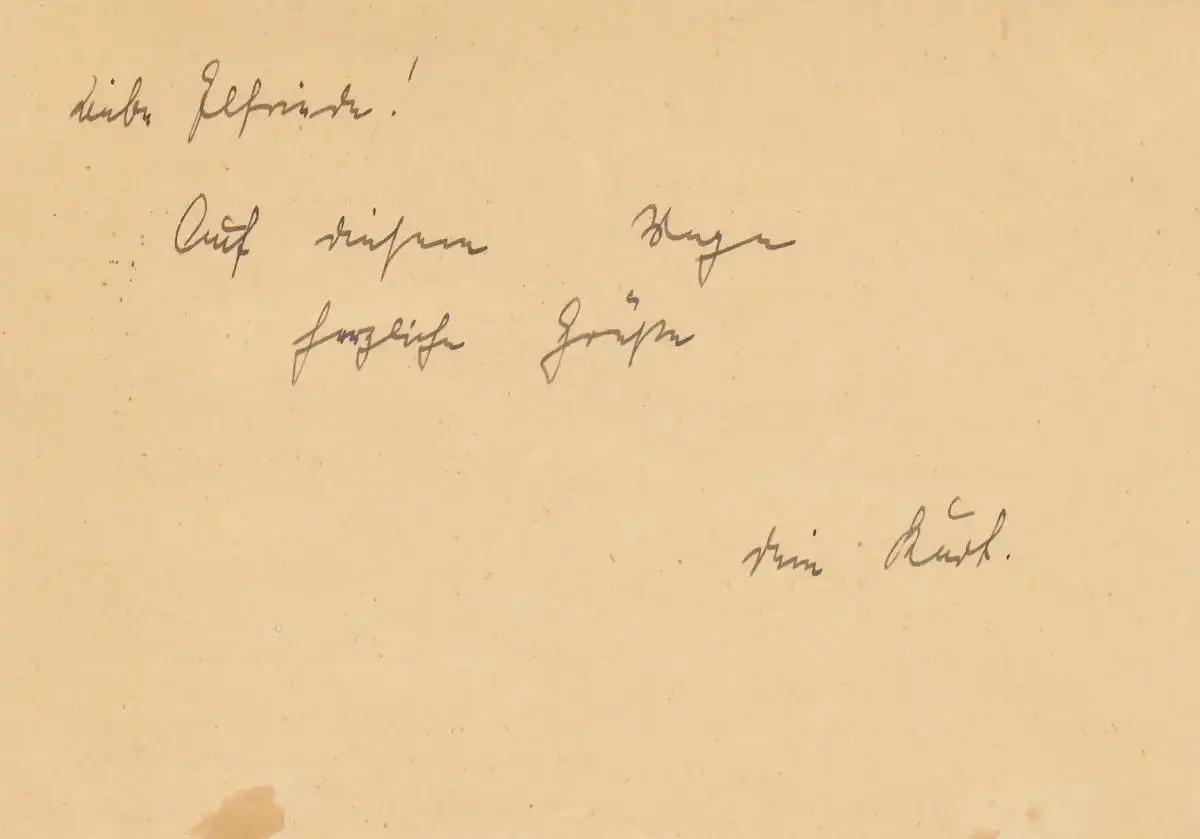 Liebe Elfriede!
Auf diesem Wege
herzliche Grüße
dein Kurt.